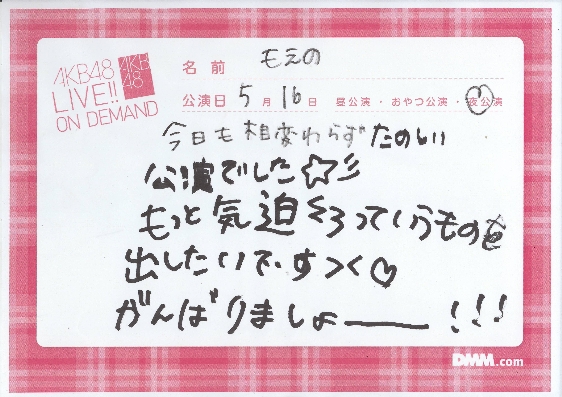 AKB48
LIVE!!
ON DEMAND
AKB
48
名前 もえの
公演日 5月16日 昼公演・おやつ公演・夜公演
今日も相変わらずたのしい
公演でした☆彡
もっと気迫そろっていうものを
出したいですっ♡
がんばりましょー!!!
DMM.com